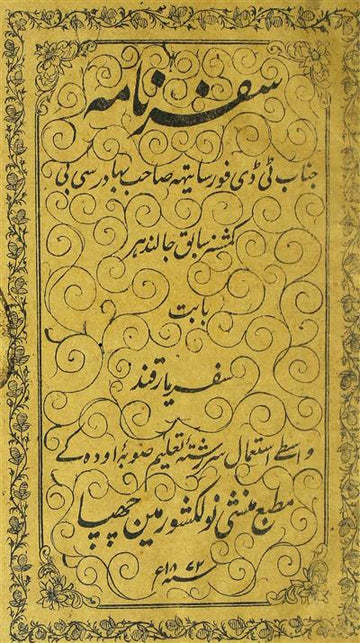 سفرنامہ
جناب ٹی ڈی فورسایتہہ صاحب بہادر سی بی
کمشنر سابق جالندہر
بابت
سفر یارقند
واسطے استعمال سررشتۂ تعلیم صوبۂ اودہ کے
مطبع منشی نولکشور مین چھپا
سنہ ۱۸۷۲ء